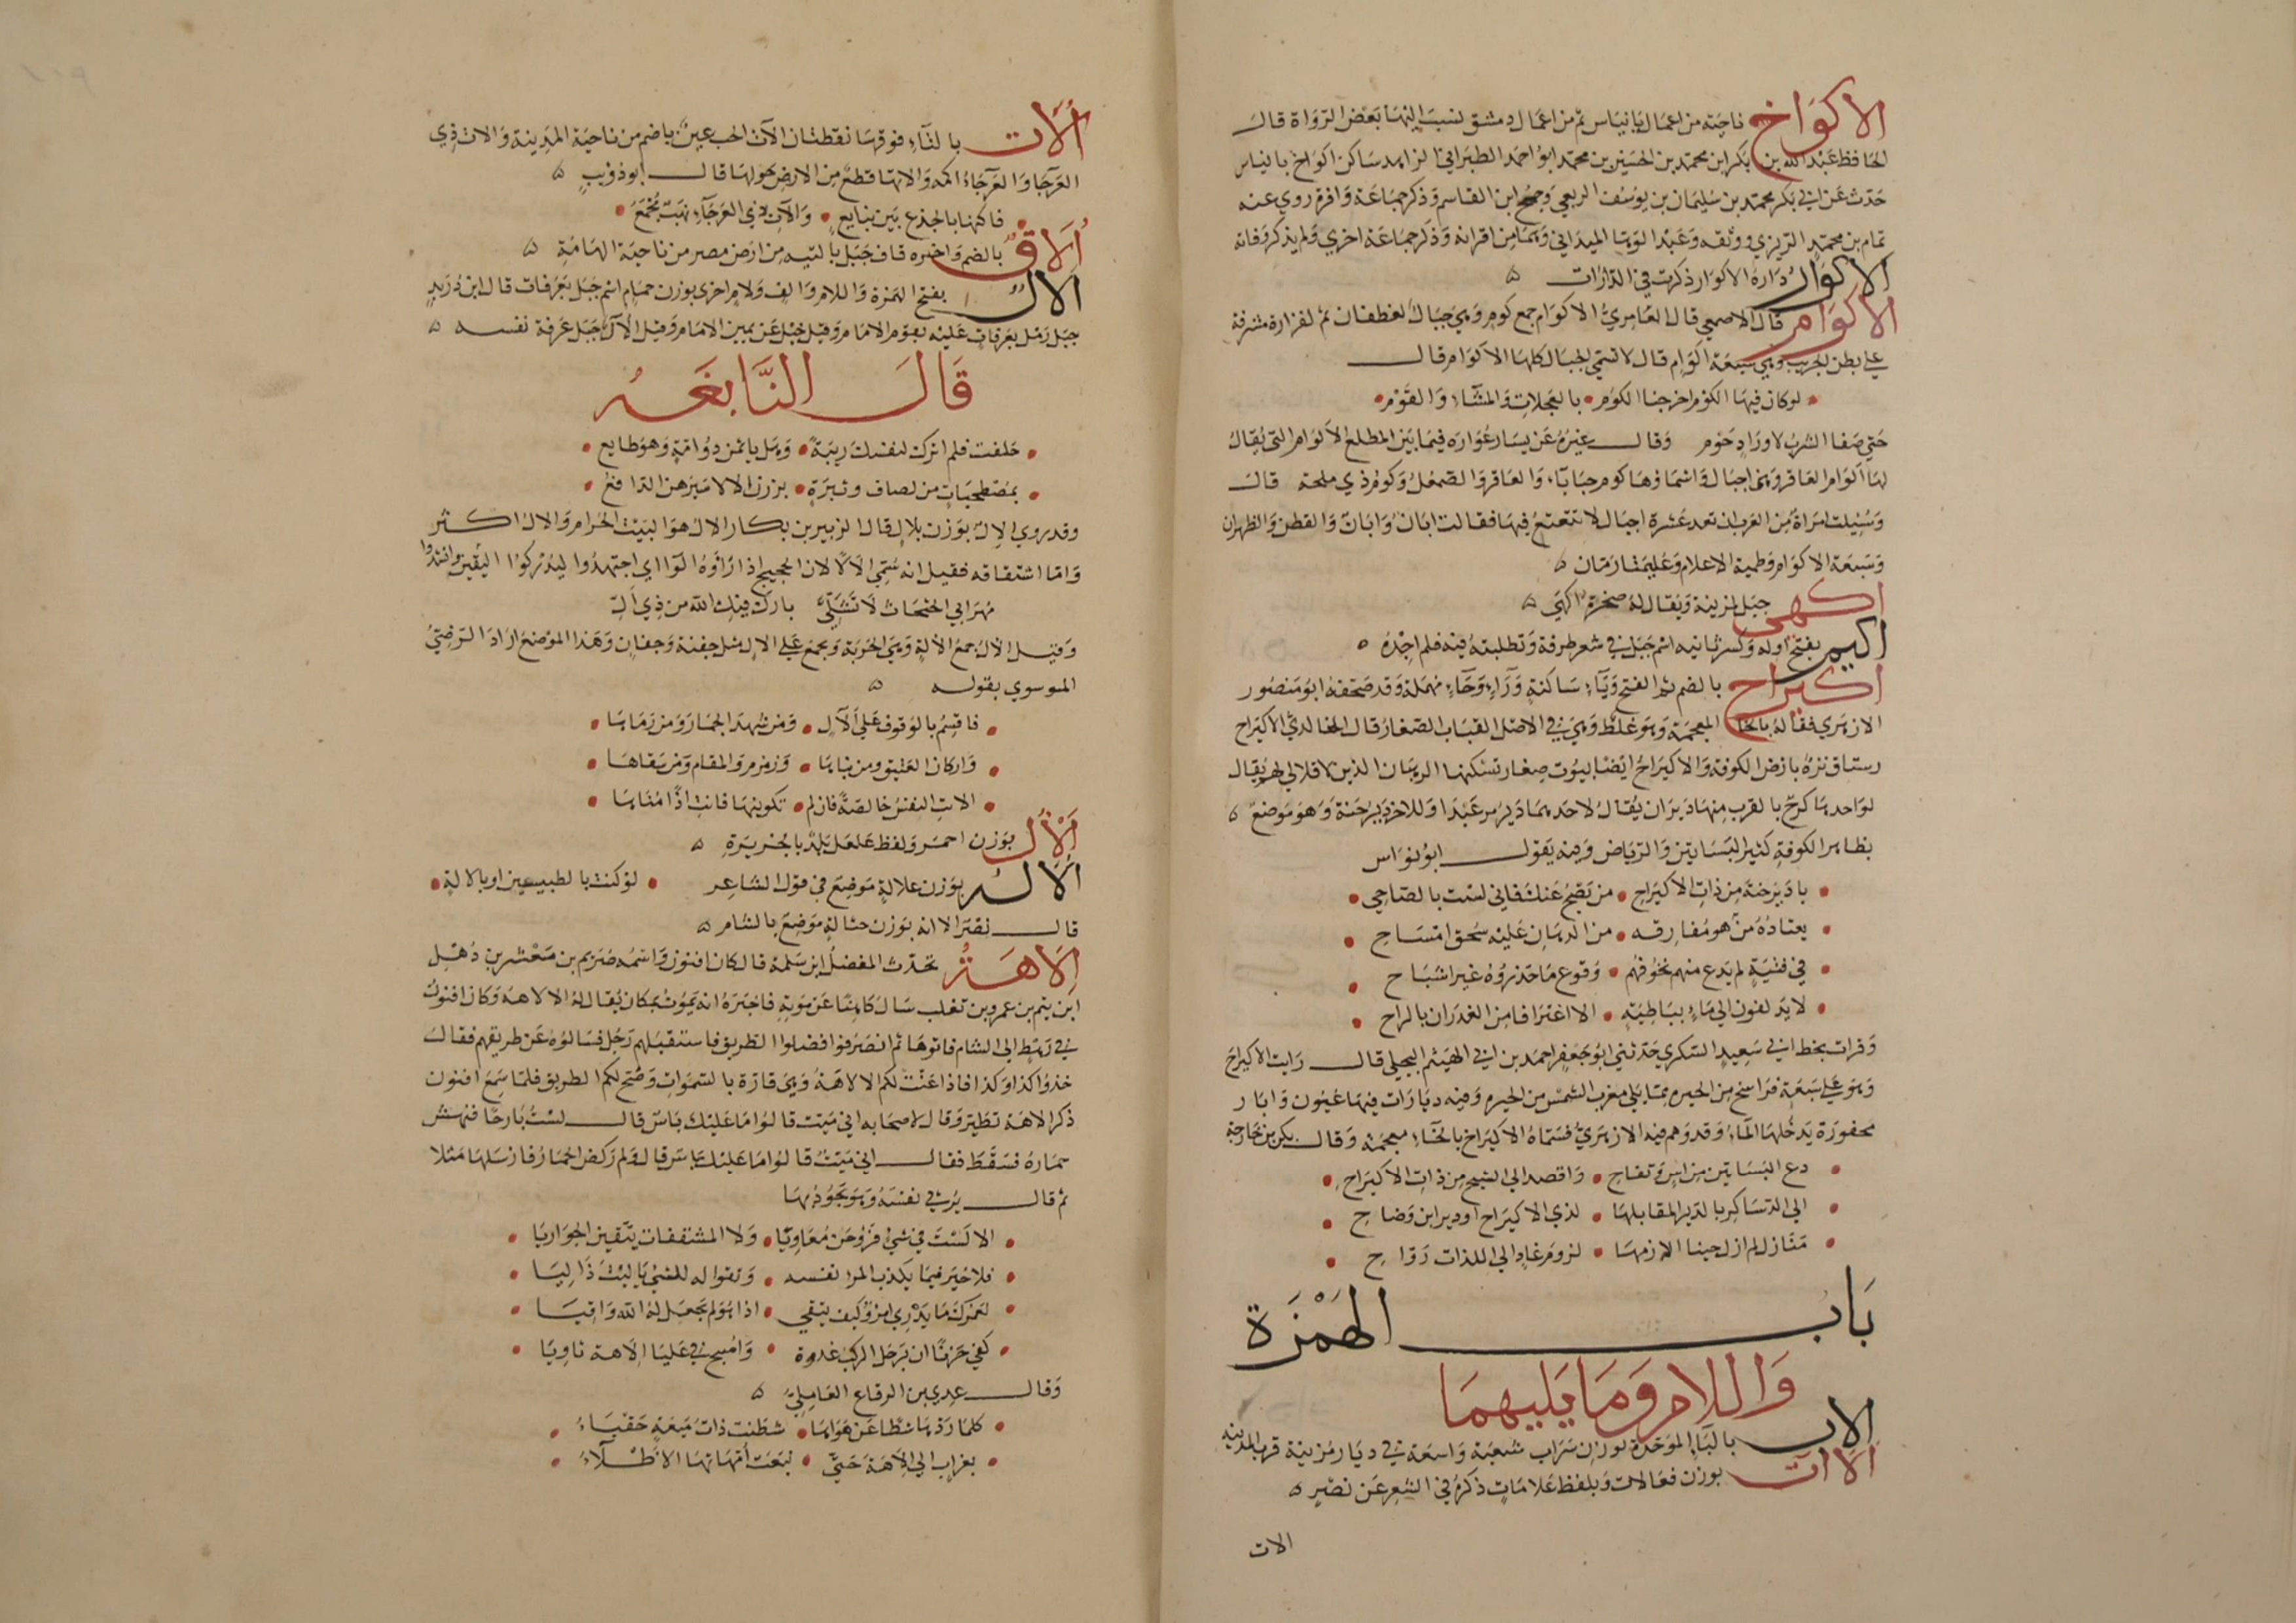 الأكواخ ناحية من اعمال بانياس ثم من اعمال دمشق نسب اليها بعض الرواة قال
الحافظ عبد الله بن بكر ابن محمد بن الحسين بن محمد ابو احمد الطبراني الزاهد ساكن اكواخ بانياس
حدث عن ابي بكر محمد بن سليمان بن يوسف الربعي وجمح ابن القاسم وذكر جماعة وافرة روي عنه
تمام بن محمد الرازي ووثقه وعبد الوهاب الميداني وهما من اقرانه وذكر جماعة اخري ولم يذكر وفاته
الأكوار دارة الاكوار ذكرت في الدارات
الأكوام قال الاصمعي قال العامري الاكوام جمع كوم وهي جبال لغطفان ثم لفزارة مشرفة
علي بطن الجريب وهي سبعة اكوام قال لا تسمي الجبال كلها الاكوام قال
لو كان فيها الكوم اخرجنا الكوم بالعجلات والمشاء والفوم
حتي صفا الشرب لاوراد حوم وقال غيره عن يسار عوارة فيما بين المطلع الاكوام التي يقال
لها اكوام العاقر وهي اجبال واسماؤها كوم حبابا والعاقر والصمعل وكوم ذي ملحة قال
وسئلت امراة من العرب ان تعد عشرة اجبال لا تتعتع فيها فقالت ابان وابان والقطن والظهران
وسبعة الاكوام وطمية الاعلام وعليمتا رمان
اكهى جبل لمزينة ويقال له صخرة اكهي
اكيم بفتح اوله وكسر ثانيه اسم جبل في شعر طرفة وتطلبته فيه فلم اجده
اكيراح بالضم ثم الفتح وياء ساكنة وراء وحاء مهملة وقد صحفه ابو منصور
الازهري فقاله بالخاء المعجمة وهو غلط وهي في الاصل القباب الصغار قال الخالدي الاكيراح
رستاق نزه بارض الكوفة والاكيراح ايضا بيوت صغار تسكنها الرهبان الذين لا قلالي لهم يقال
لواحدها كرح بالقرب منها ديران يقال لاحدهما دير مرعبدا وللاخر دير حنة وهو موضع
بظاهر الكوفة كثير البساتين والرياض وفيه يقول ابو نواس
يا دير حنة من ذات الاكيراح من يصح عنك فاني لست بالصاحي
يعتاده من هو مفارقه من الدهان عليه سحق امساح
في فتية لم يدع منهم تخوفهم وقوع ما حذروه غير اشباح
لا يدلفون الي ماء بباطية الا اغترافا من الغدران بالراح
وقرات بخط ابي سعيد السكري حدثني ابو جعفر احمد بن ابي الهيثم البجلي قال رايت الاكيراح
وهو علي سبعة فراسخ من الحيرة مما يلي مغرب الشمس من الحيرة وفيه ديارات فيها عيون وابار
محفورة يدخلها الماء وقد وهم فيه الازهري فسماه الاكيراخ بالخاء معجمة وقال بكر بن خارجة
دع البساتين من اس وتفاح واقصد الي الشيح من ذات الاكيراح
الي الدساكر بالدير المقابلها لذي الاكيراح او دير ابن وضاح
منازل لم ازل حينا الازمها لزوم غاد الي اللذات رواح
باب الهمزة
واللام وما يليهما
ألاب بالباء الموحدة بوزن شراب شعبة واسعة في ديار مزينة قرب المدينة
ألاآت بوزن فعالات وبلفظ علامات ذكره في الشعر عن نصر
الات
ألات بالتاء فوقها نقطتان الآت الحب عين باضم من ناحية المدينة والات ذي
العرجا والعرجاء اكمة والاتها قطع من الارض حولها قال ابو ذؤيب
فكانها بالجزع بين ينابع والات ذي العرجاء نهب مجمع
ألاق بالضم واخره قاف جبل بالتيه من ارض مصر من ناحية الهامة
ألال بفتح الهمزة واللام والف ولام اخرى بوزن حمام اسم جبل بعرفات قال ابن دريد
جبل رمل بعرفات عليه يقوم الامام وقيل جبل عن يمين الامام وقيل الال جبل عرفة نفسه
قال النابغة
حلفت فلم اترك لنفسك ريبة وهل ياثمن ذو امة وهو طايع
بمصطحبات من لصاف وثبرة يزرن الالا سيرهن التدافع
وقد روي الال بوزن بلال قال الزبير بن بكار الال هو البيت الحرام والال اكثر
واما اشتقاقه فقيل انه سمي الالا لان الحجيج اذا راوه الوا اي اجتهدوا ليدركوا اليقين وانشدوا
مهر ابي الحثحاث لا تشلي بارك فيك الله من ذي ال
وقيل الال جمع الالة وهي الحربة ويجمع علي الال مثل جفنة وجفان وهذا الموضع اراد الرضي
الموسوي بقوله
فاقسم بالوقوف علي الال ومن شهد الجمار ومن رماها
واركان العتيق ومن بناها وزمزم والمقام ومن سقاها
لانت النفس خالصة فان لم تكونيها فانت اذا مناها
ألأل بوزن احمر ولفظ علعل بلد بالجزيرة
ألالة بوزن علالة موضع في قول الشاعر لو كنت بالطبسين او بالالة
قال نصر الا انه بوزن حثالة موضع بالشام
إلاهة تحدث المفضل ابن سلمة قال كان افنون واسمه صريم بن معشر بن ذهل
ابن تيم بن عمرو بن تغلب سال كاهنا عن موته فاخبره انه يموت بمكان يقال له الالاهة وكان افنون
في رهط الي الشام فاتوها ثم انصرفوا فضلوا الطريق فاستقبلهم رجل فسالوه عن طريقهم فقال
خذوا كذا وكذا فاذا عنت لكم الالاهة وهي قارة بالسماوات وضح لكم الطريق فلما سمع افنون
ذكر الاهة تطير وقال لاصحابه اني ميت قالوا ما عليك باس قال لست بارحا فنهش
حماره فسقط فقال اني ميت قالوا ما عليك باس قال ولم ركض الحمار فارسلها مثلا
ثم قال يرثي نفسه وهو يجود بها
الا لست في شي فروحن معاويا ولا المشفقات يتقين الجواريا
فلا خير فيما يكذب المرء نفسه وتقواله للشي يا ليت ذا ليا
لعمرك ما يدري امرؤ كيف يتقي اذا هو لم يجعل له الله واقيا
كفي حزنا ان يرحل الركب غدوة واصبح في عليا الاهة ثاويا
وقال عدي بن الرقاع العاملي
كلما ردها شطا عن هواها شطنت ذات ميعة حقباء
بغراب الي الالاهة حتي تبعت امهاتها الاطلاء